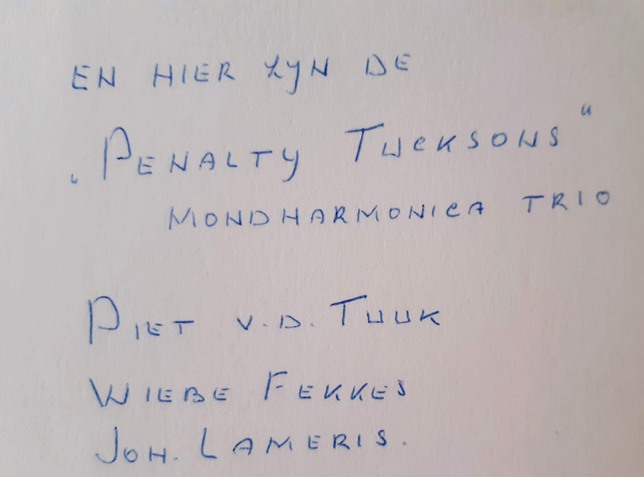 EN HIER ZYN DE
„PENALTY TUCKSONS"
MONDHARMONICA TRIO
PIET V.D. TUUK
WIEBE FEKKES
JOH. LAMERIS.